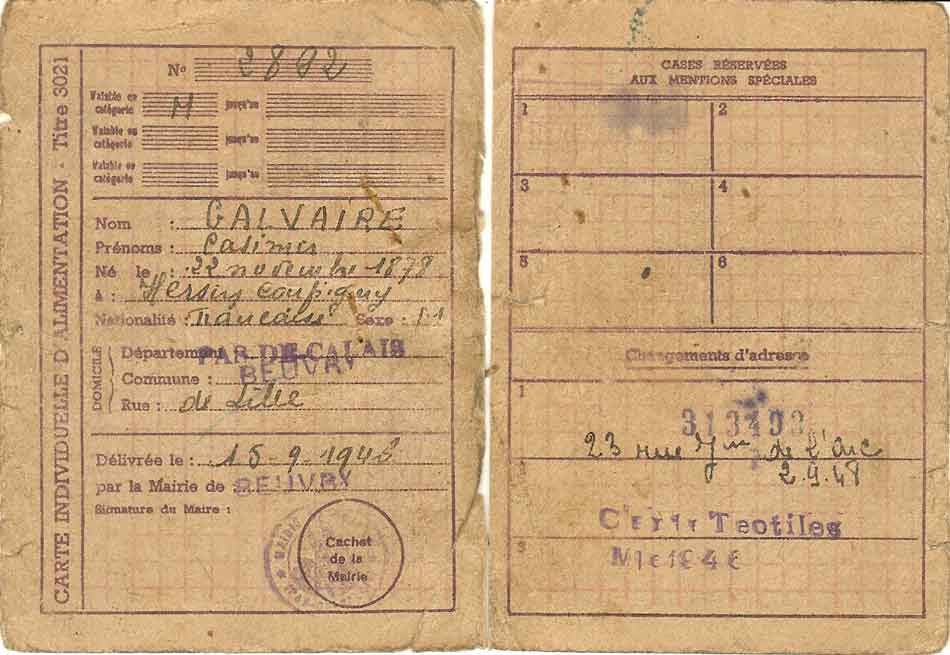 CARTE INDIVIDUELLE D'ALIMENTATION - Titre 3021
No 2802
Valable en catégorie M jusqu'au
Valable en catégorie jusqu'au
Valable en catégorie jusqu'au
Nom : GALVAIRE
Prénoms : Casimir
Né le : 22 novembre 1878
à : Hersin Coupigny
Nationalité : Française Sexe : M
DOMICILE
Département PAS-DE-CALAIS
Commune : BEUVRY
Rue : de Lille
Délivrée le : 15-9-1946
par la Mairie de BEUVRY
Signature du Maire :
MAIRIE
Cachet
de la
Mairie
CASES RÉSERVÉES
AUX MENTIONS SPÉCIALES
1 2
3 4
5 6
Changements d'adresse
1
313403
23 rue Jne de l'Arc
2
2.9.48
Carte Textiles
3